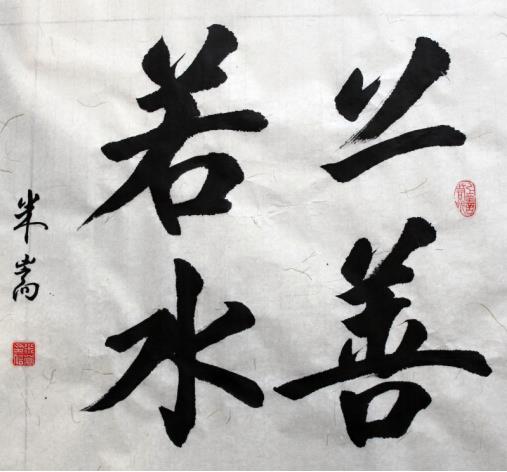 上善
若水
米嵩